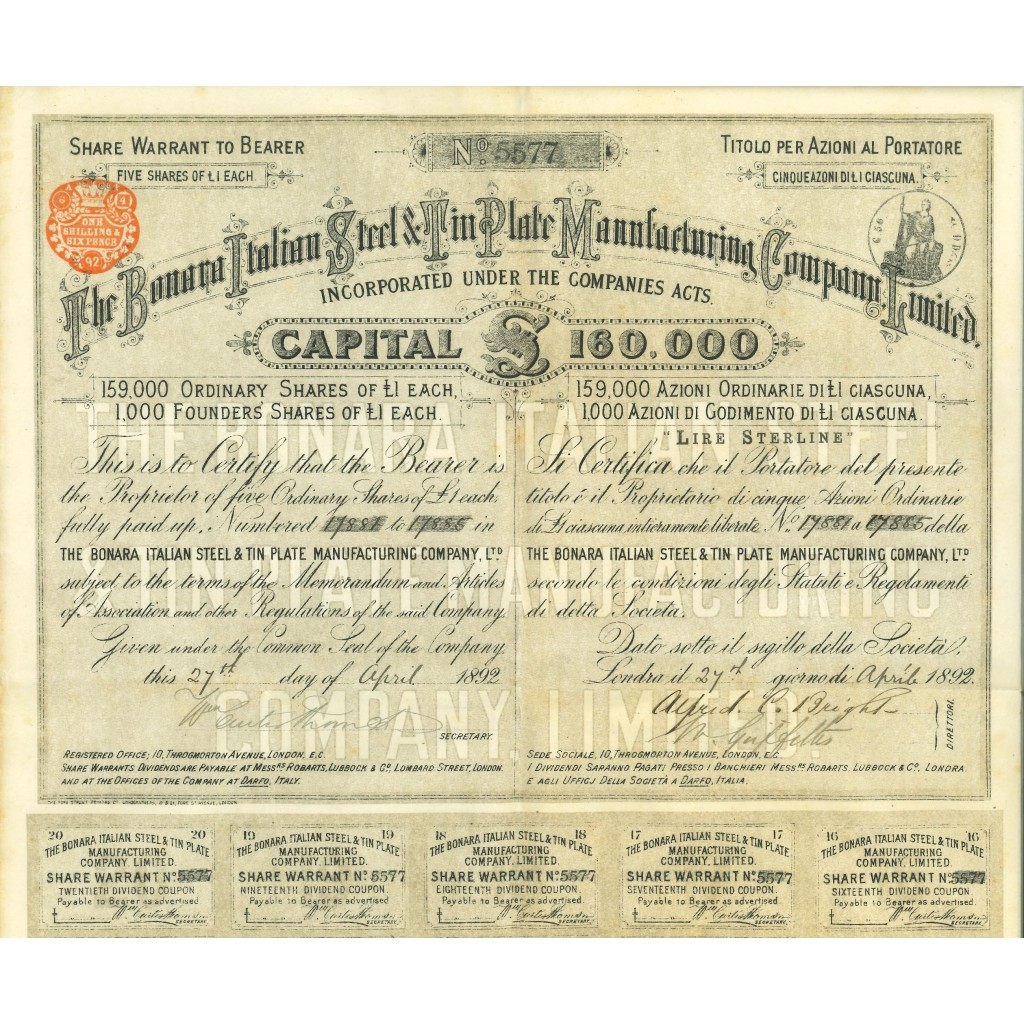 SHARE WARRANT TO BEARER
FIVE SHARES OF £1 EACH.
No. 5577
TITOLO PER AZIONI AL PORTATORE
CINQUE AZIONI DI £1 CIASCUNA.
ONE
SHILLING &
SIXPENCE
92
The Bonara Italian Steel & Tin Plate Mannfacturing Company, Limited.
INCORPORATED UNDER THE COMPANIES ACTS.
CAPITAL £ 160.000
159,000 ORDINARY SHARES OF £1 EACH,
1,000 FOUNDERS' SHARES OF £1 EACH.
This is to Certify that the Bearer is
the Proprietor of five Ordinary Shares of £1 each,
fully paid up, Numbered 17881 to 17885 in
THE BONARA ITALIAN STEEL & TIN PLATE MANUFACTURING COMPANY, LTD
subject to the terms of the Memorandum and Articles
of Association and other Regulations of the said Company.
Given under the Common Seal of the Company
this 27th day of April 1892
SECRETARY.
REGISTERED OFFICE; 10, THROGMORTON AVENUE, LONDON, E.C.
SHARE WARRANTS DIVIDENDS ARE PAYABLE AT MESSRS ROBARTS, LUBBOCK & CO, LOMBARD STREET, LONDON.
AND AT THE OFFICES OF THE COMPANY AT DARFO, ITALY.
159,000 AZIONI ORDINARIE DI £1 CIASCUNA,
1,000 AZIONI DI GODIMENTO DI £1 CIASCUNA.
"LIRE STERLINE"
Si Certifica che il Portatore del presente
titolo é il Proprietario di cinque Azioni Ordinarie
di £1 ciascuna, intieramente liberate No. 17881 a 17885 della
THE BONARA ITALIAN STEEL & TIN PLATE MANUFACTURING COMPANY, LTD
secondo le condizioni degli Statuti e Regolamenti
di detta Societa.
Dato sotto il sigillo della Società.
Londra il 27th giorno di Aprile 1892.
Alfred C. Bright
DIRETTORI.
SEDE SOCIALE, 10, THROGMORTON AVENUE, LONDON, E.C.
I DIVIDENDI SARANNO PAGATI PRESSO I BANCHIERI MESSRS ROBARTS, LUBBOCK & CO, LONDRA
E AGLI UFFICJ DELLA SOCIETÀ A DARFO, ITALIA.
THE BONARA ITALIAN STEEL
MANUFACTURING
COMPANY, LIMITED.
20 20
THE BONARA ITALIAN STEEL & TIN PLATE
MANUFACTURING
COMPANY, LIMITED.
SHARE WARRANT No. 5577
TWENTIETH DIVIDEND COUPON.
Payable to Bearer as advertised.
Wm Curtis Thomson
SECRETARY.
19 19
THE BONARA ITALIAN STEEL & TIN PLATE
MANUFACTURING
COMPANY, LIMITED.
SHARE WARRANT No. 5577
NINETEENTH DIVIDEND COUPON.
Payable to Bearer as advertised.
Wm Curtis Thomson
SECRETARY.
18 18
THE BONARA ITALIAN STEEL & TIN PLATE
MANUFACTURING
COMPANY, LIMITED.
SHARE WARRANT No. 5577
EIGHTEENTH DIVIDEND COUPON.
Payable to Bearer as advertised.
Wm Curtis Thomson
SECRETARY.
17 17
THE BONARA ITALIAN STEEL & TIN PLATE
MANUFACTURING
COMPANY, LIMITED.
SHARE WARRANT No. 5577
SEVENTEENTH DIVIDEND COUPON.
Payable to Bearer as advertised.
Wm Curtis Thomson
SECRETARY.
16 16
THE BONARA ITALIAN STEEL & TIN PLATE
MANUFACTURING
COMPANY, LIMITED.
SHARE WARRANT No. 5577
SIXTEENTH DIVIDEND COUPON.
Payable to Bearer as advertised.
Wm Curtis Thomson
SECRETARY.